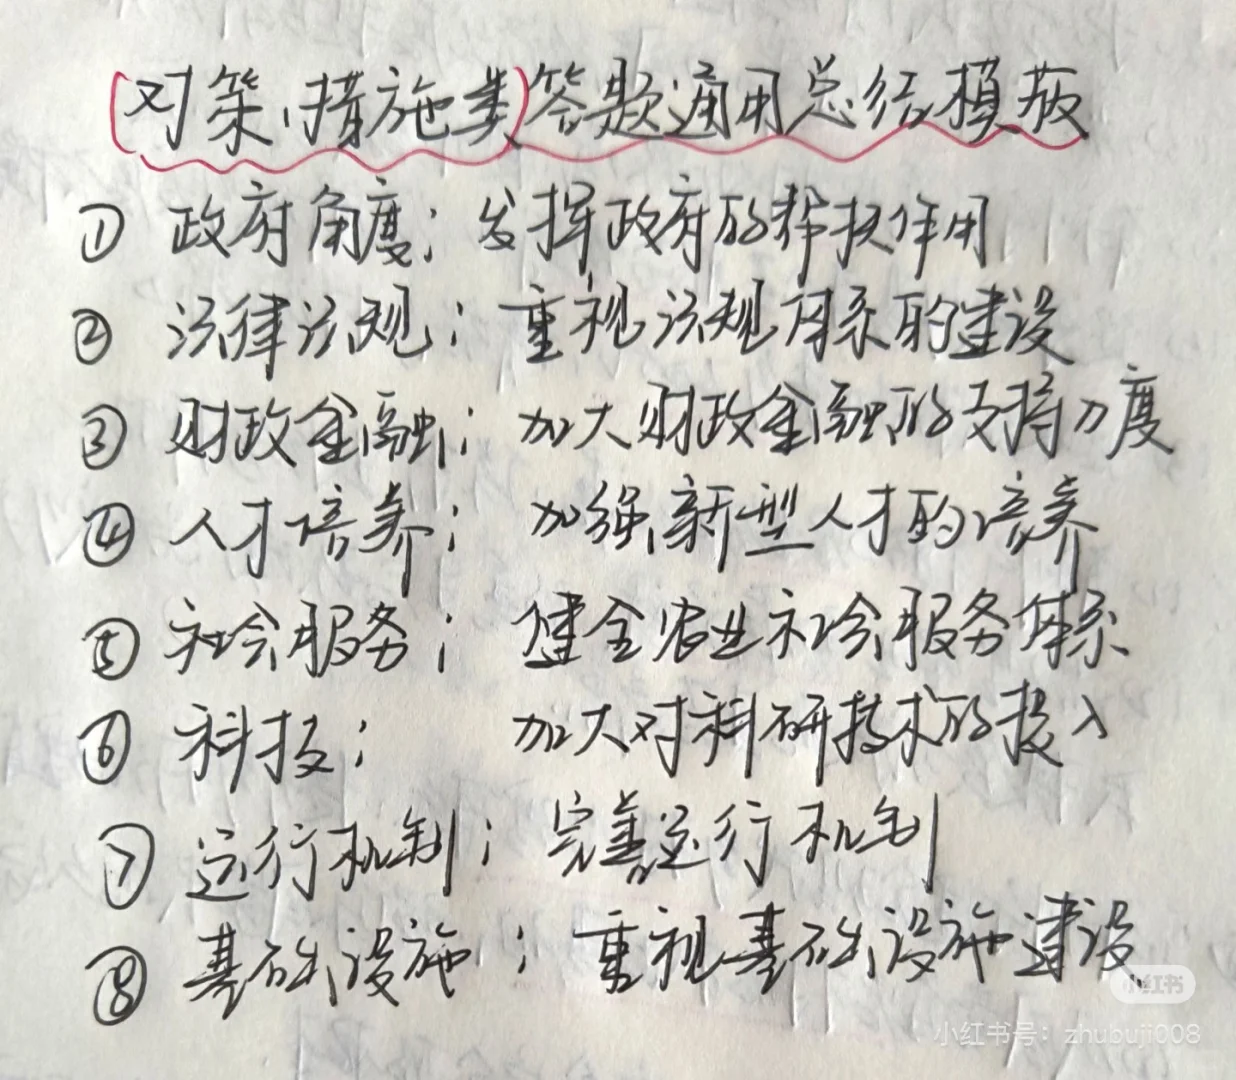 (对策、措施类)答题通用总结模板
① 政府角度：发挥政府的帮扶作用
② 法律法规：重视法规体系的建设
③ 财政金融：加大财政金融的支持力度
④ 人才培养：加强新型人才的培养
⑤ 社会服务：健全农业社会服务体系
⑥ 科技：加大对科研技术的投入
⑦ 运行机制：完善运行机制
⑧ 基础设施：重视基础设施建设
小红书
小红书号：zhubuji008